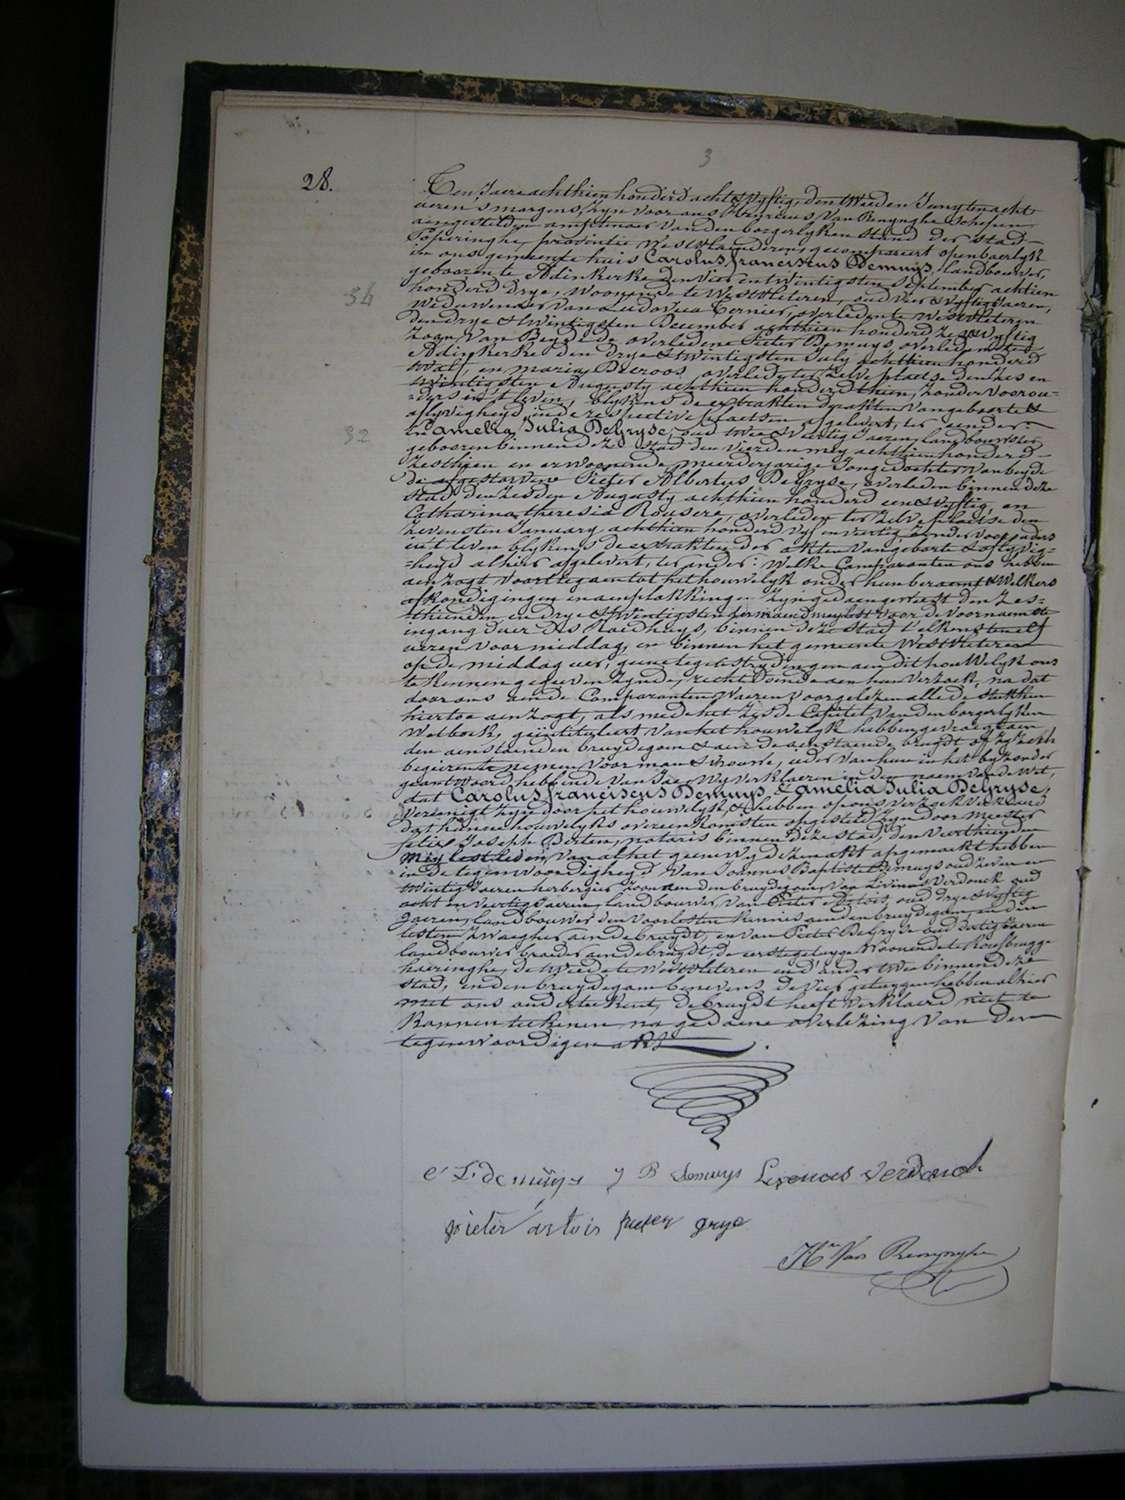 3
28.
Ten Jaere achthien honderd acht & vyftig, den tweeden Juny ten acht
ueren 's morgens, zyn voor ons Henricus Van Renynghe Schepen
aengestelden amptenaer van den borgerlyken stand der Stad
Poperinghe, provintie Westvlaenderen gecompareert openbaerlyk
in ons gemeente huis Carolus franciscus Demuys, landbouwer,
gebooren te Adinkerke den vier en twintigsten September achtien
honderd drye, woonende te Westvleteren, oud vier & vyftig Jaeren,
34
Wedewenaer van Ludovica Ternier, overleden te Westvleteren
den drye & twintigsten December achthien honderd zes & vyftig
Zoon van Beyde de overledene Pieter Demuys overleden te
Adinkerke den drye & twintigsten July achthien honderd
twaelf, en maria Deroos, overleden ter zelve plaetse den zes en
twintigsten Augusty achthien honderd thien, zonder voorou-
ders in't leven, blykens de extrakten d'akten van geboorte &
aflyvigheyd in de respective plaetsen afgelevert, ter eender:
32
En Amelia Julia DeGryse, oud twee & veertig Jaeren, landbouwster
gebooren binnen deze stad den vierden mey achthien honderd
zesthien en er woonende, meerderjarige Jonge dochter van beyde
de afgestorvene Pieter Albertus DeGryse, overleden binnen deze
stad den zesden Augusty achthien honderd een & vyftig, en
Catharina theresia Rousere, overleden ter zelve plaetse den
zevensten January achthien honderd vyf en veertig zonder voorouders
in't leven blykens de extrakten der akten van geborte & aflyvig-
heyd alhier afgelevert, ter ander: Welke Comparanten ons hebben
aenzogt voorttegaen tot het houwelyk onder hun beraemt & Welkers
afkondigingen en aenplakkingen zyn gedaen geweest den zes-
thienden en drye & twintigsten der maend mey lest voor de voornaemste
ingang duer des Raedhuys, binnen deze stad t'elkens ten elf
ueren voormiddag, en binnen het gemeente Westvleteren
op de middag uer; geene tegenstrydingen aen dit houwelyk ons
te kennen gegeven zynde, recht doende aen hun verzoek, na dat
door ons aen de Comparanten Waeren voorgelezen alle de stukken
hiertoe aenzogt, als mede het zesde Capittel van den borgerlyken
Wetboek, geintituleert van het houwelyk hebben gevraegd aen
den aenstaenden bruydegom & aen de aenstaende bruydt of zy zich
begeirente nemen voor man & vrouw, ieder van hun in het byzonder
geantwoord hebbende van Jae, Wy verklaeren in den naem van de Wet,
dat Carolus franciscus Demuys & Amelia Julia DeGryse,
vereenigt zyn door het houwelyk, & hebben op ons verzoek verklaerd
dat hunne houwelyks overeenkomsten opgesteld zyn door meester
felix Joseph Berten, notaris binnen deze stad, den vierthienden
Mey lestleden, van al het geene wy deze akt opgemaekt hebben
in de tegenwoordigheyd van Joannes Baptiste Demuys oud zeven en
twintig Jaeren herbergier zoon aen den bruydegom, van Livinus Verdonck oud
acht en veertig Jaeren, landbouwer, van Pieter Artois, oud drye & vyftig
Jaeren, landbouwer den voorlesten kennis aen den bruydegom, en den
lesten Zwaegher aen de bruydt, en van Pieter DeGryse oud dertig Jaeren
landbouwer broeder aen de bruydt, de eerste getuyge woonende te Rousbrugge
haeringhe, de tweede te Westvleteren en d'ander twee binnen deze
stad, en den bruydegom benevens de vier getuygen hebben alhier
met ons onderteekent, de bruydt heeft verklaerd niet te
konnen teekenen na gedaene overlezing van der
tegenwoordigen akt.
C F. demuys J B Demuys Livinus Verdonck
pieter artois pieter gryse
Hri Van Renynghe